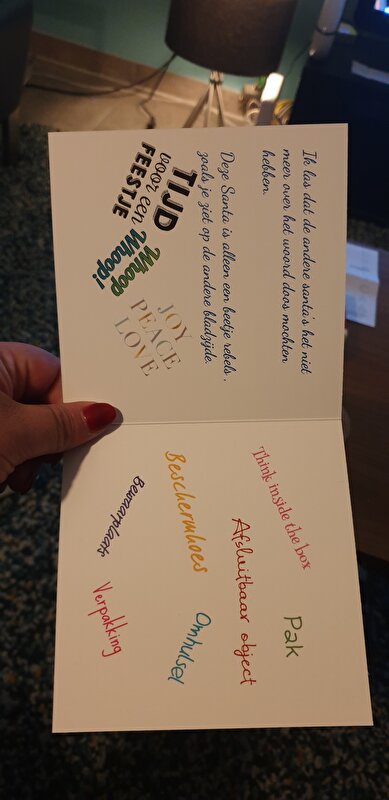 Ik las dat de andere santa's het niet
meer over het woord doos mochten
hebben.
Deze Santa is alleen een beetje rebels,
zoals je ziet op de andere bladzijde.
TIJD
voor een
FEESTJE
Whoop
Whoop!
JOY
PEACE
LOVE
Think inside the box
Pak
Afsluitbaar object
Beschermhoes
Omhulsel
Bewaarplaats
Verpakking